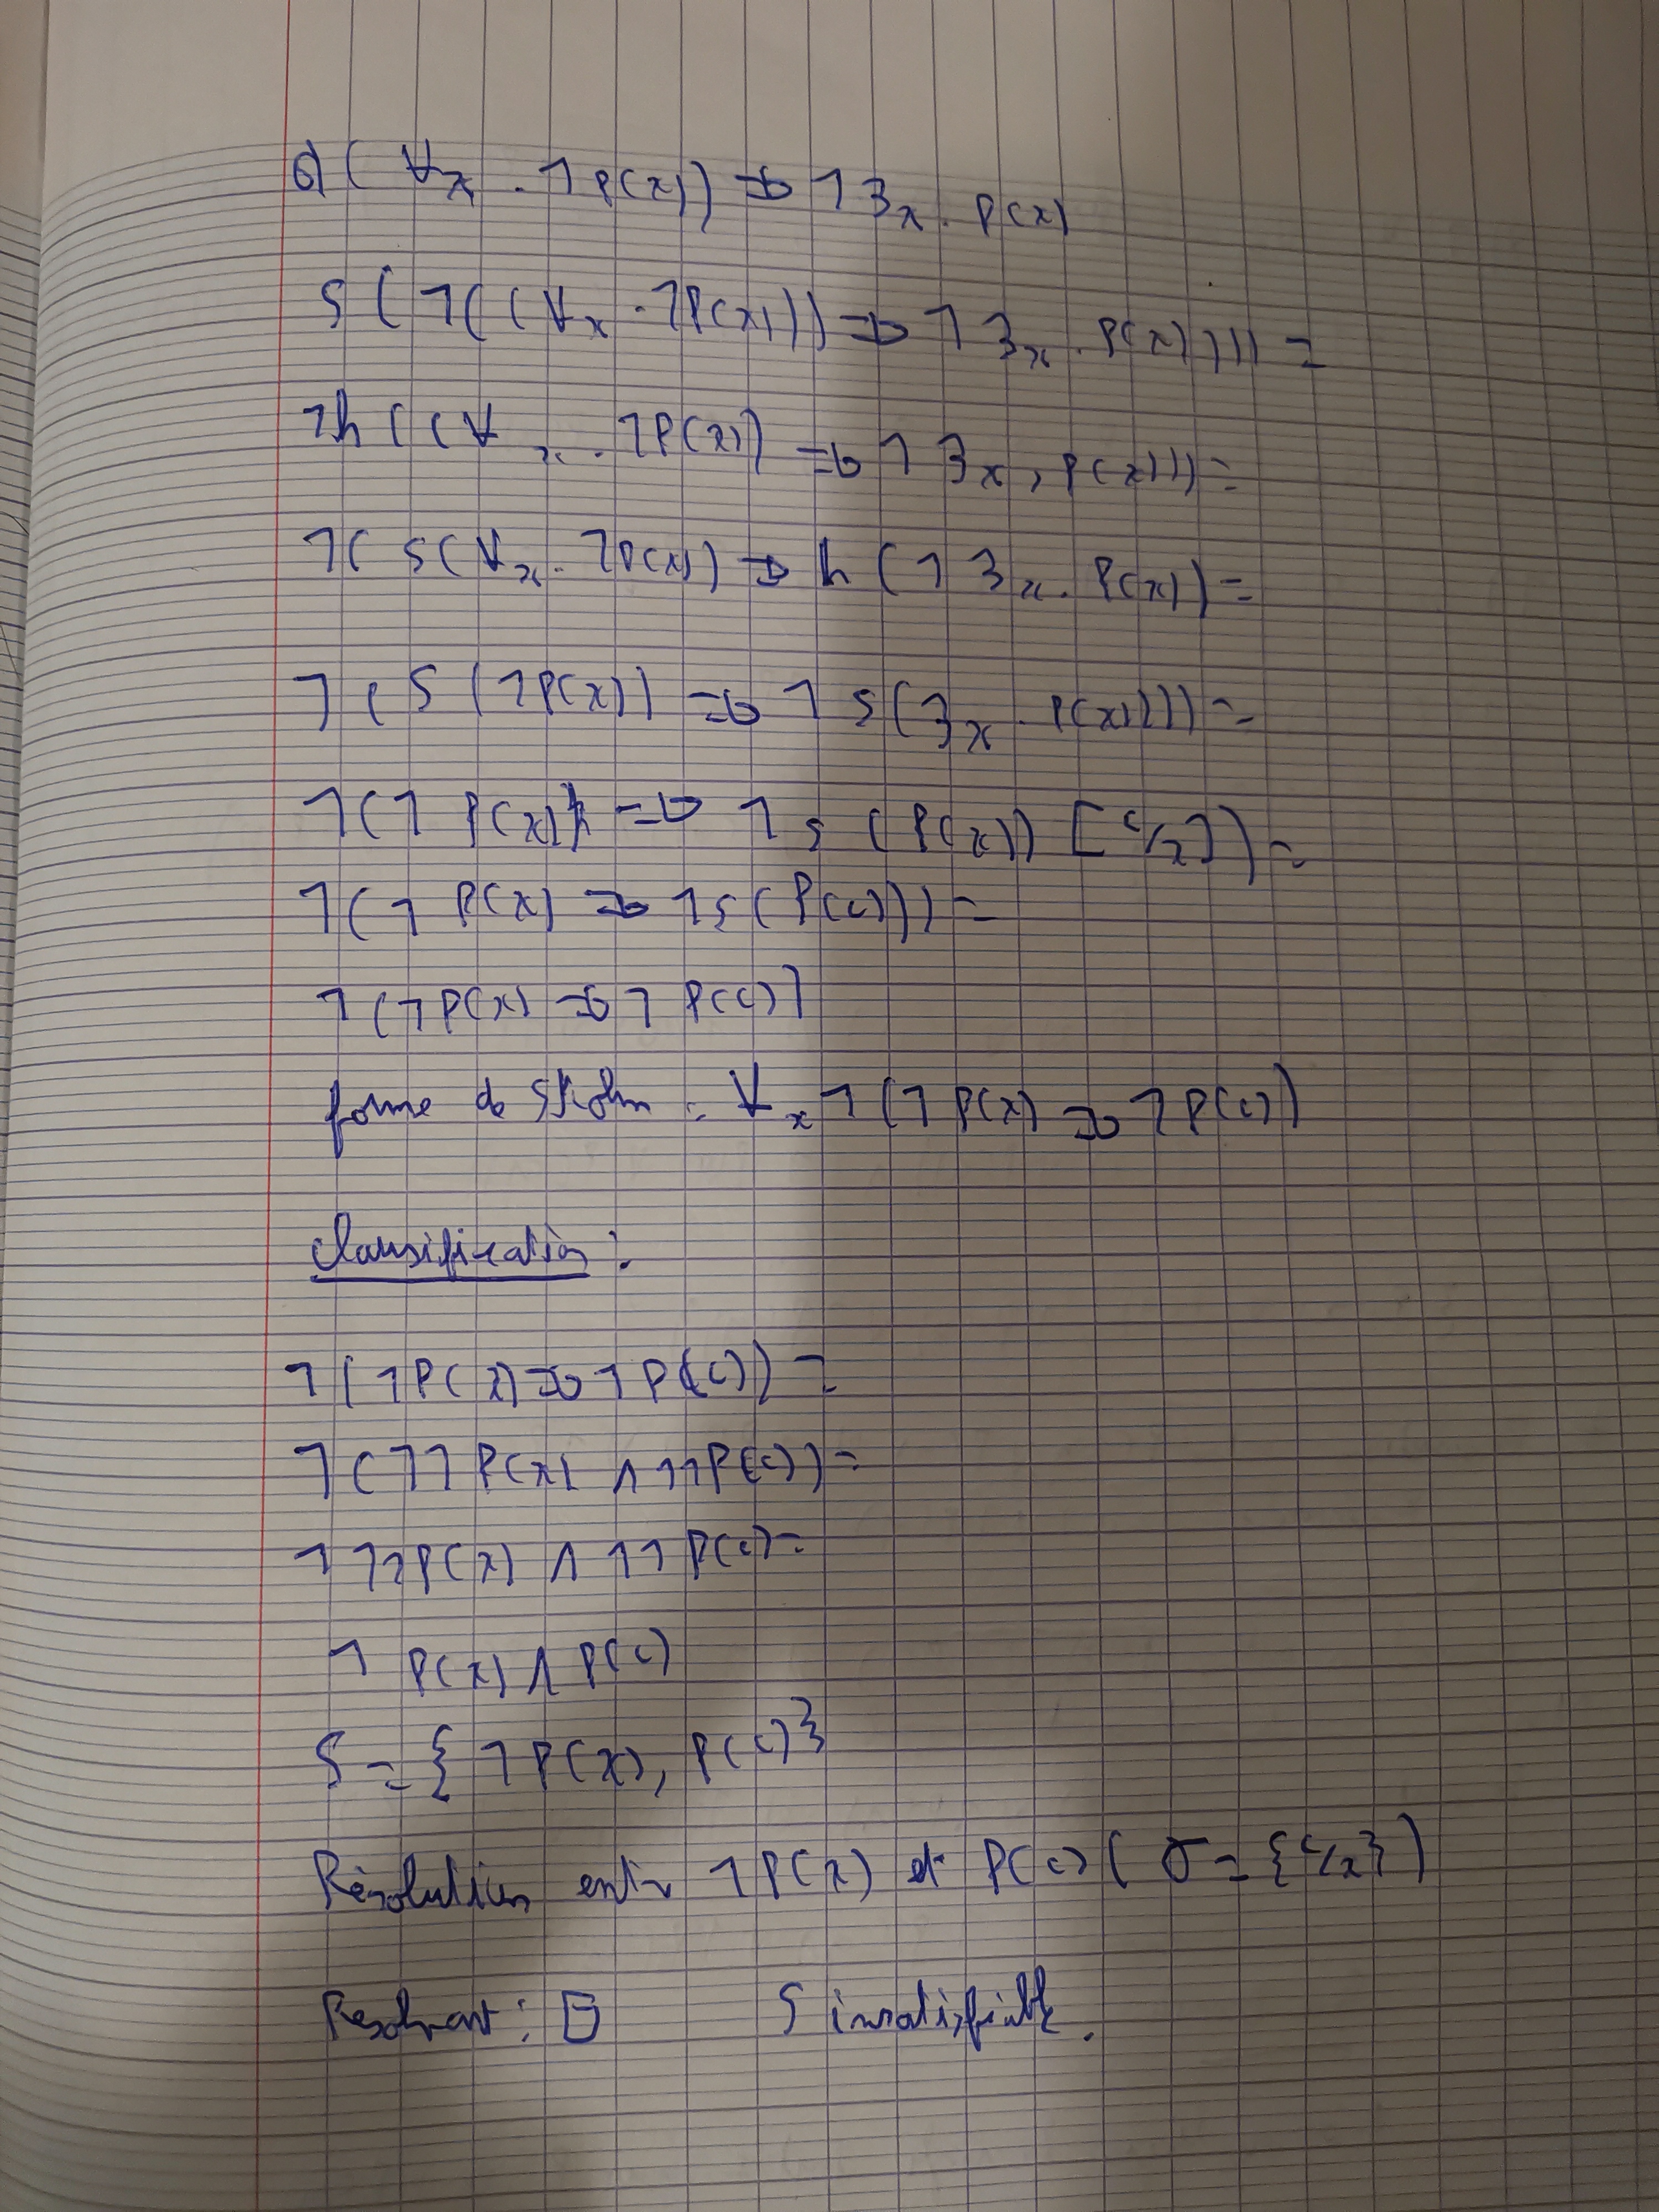 6) ( ∀x . ¬P(x)) ⇒ ¬∃x . P(x)
s ( ¬( (∀x . ¬P(x))) ⇒ ¬ ∃x . P(x)))) =
¬h ( (∀x . ¬P(x)) ⇒ ¬ ∃x, P(x))) =
¬( s(∀x . ¬P(x)) ⇒ h ( ¬ ∃x . P(x)) =
¬ ( s (¬P(x)) ⇒ ¬ s(∃x . P(x)))) =
¬(¬ P(x)) ⇒ ¬ s (P(x)) [c/x]) =
¬(¬ P(x) ⇒ ¬s(P(c))) =
¬ (¬P(x) ⇒ ¬ P(c))
forme de Skolm : ∀x ¬ (¬ P(x) ⇒ ¬P(c))
Clausification :
¬ (¬P(x) ⇒ ¬P(c)) =
¬ (¬¬ P(x) ∧ ¬¬P(c)) =
¬¬¬P(x) ∧ ¬¬ P(c) =
¬ P(x) ∧ P(c)
S = { ¬P(x), P(c)}
Résolution entre ¬P(x) et P(c) ( σ = {c/x})
Resolvant : □ S insatisfiable.